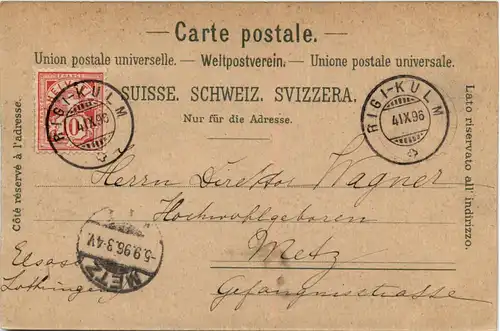 Carte postale.
Union postale universelle. – Weltpostverein. – Unione postale universale.
SUISSE. SCHWEIZ. SVIZZERA.
Nur für die Adresse.
Côté réservé à l'adresse.
Lato riservato all' indirizzo.
RIGI-KULM
4IX96
RIGI-KULM
4IX96
10
Herrn Direktor Wagner
Hochwohlgeboren
Metz
Gefängnisstrasse
Elsass
Lothringen
METZ
5.9.96.3-4V.